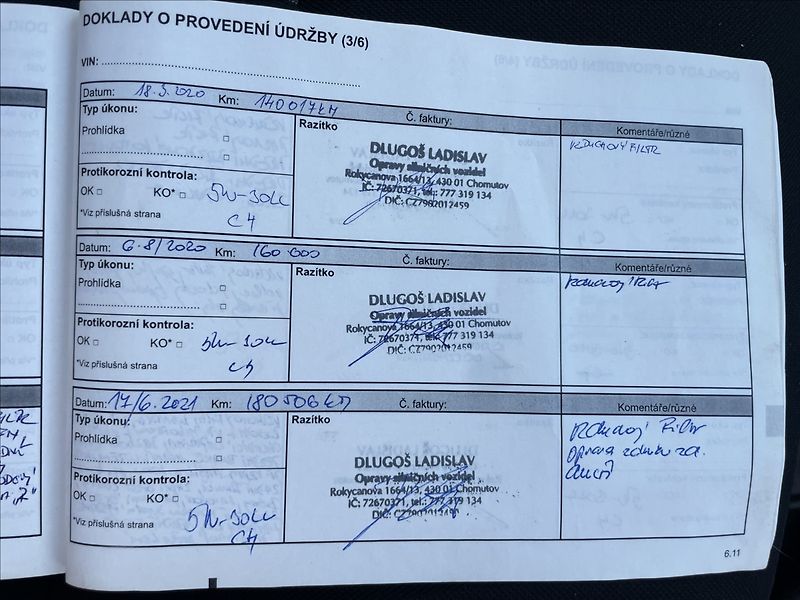 DOKLADY O PROVEDENÍ ÚDRŽBY (3/6)
VIN:
Datum: 18.5.2020 Km: 140017KM Č. faktury: Komentáře/různé
Typ úkonu: Razítko
Prohlídka
DLUGOŠ LADISLAV
Opravy silničních vozidel
Rokycanova 1664/13, 430 01 Chomutov
IČ: 72670371, tel.: 777 319 134
DIČ: CZ7902012459
Protikorozní kontrola:
OK KO* 5W-30LL
*Viz příslušná strana C4
Datum: 6.8/2020 Km: 160 000 Č. faktury: Komentáře/různé
Typ úkonu: Razítko
Prohlídka
DLUGOŠ LADISLAV
Opravy silničních vozidel
Rokycanova 1664/13, 430 01 Chomutov
IČ: 72670371, tel.: 777 319 134
DIČ: CZ7902012459
Protikorozní kontrola:
OK KO* 5W-30LL
*Viz příslušná strana C4
Datum: 17/6.2021 Km: 180506KM Č. faktury: Komentáře/různé
Typ úkonu: Razítko
Prohlídka
Filtr
Oprava
DLUGOŠ LADISLAV
Opravy silničních vozidel
Rokycanova 1664/13, 430 01 Chomutov
IČ: 72670371, tel.: 777 319 134
DIČ: CZ7902012459
Protikorozní kontrola:
OK KO* 5W-30LL
*Viz příslušná strana C4
6.11